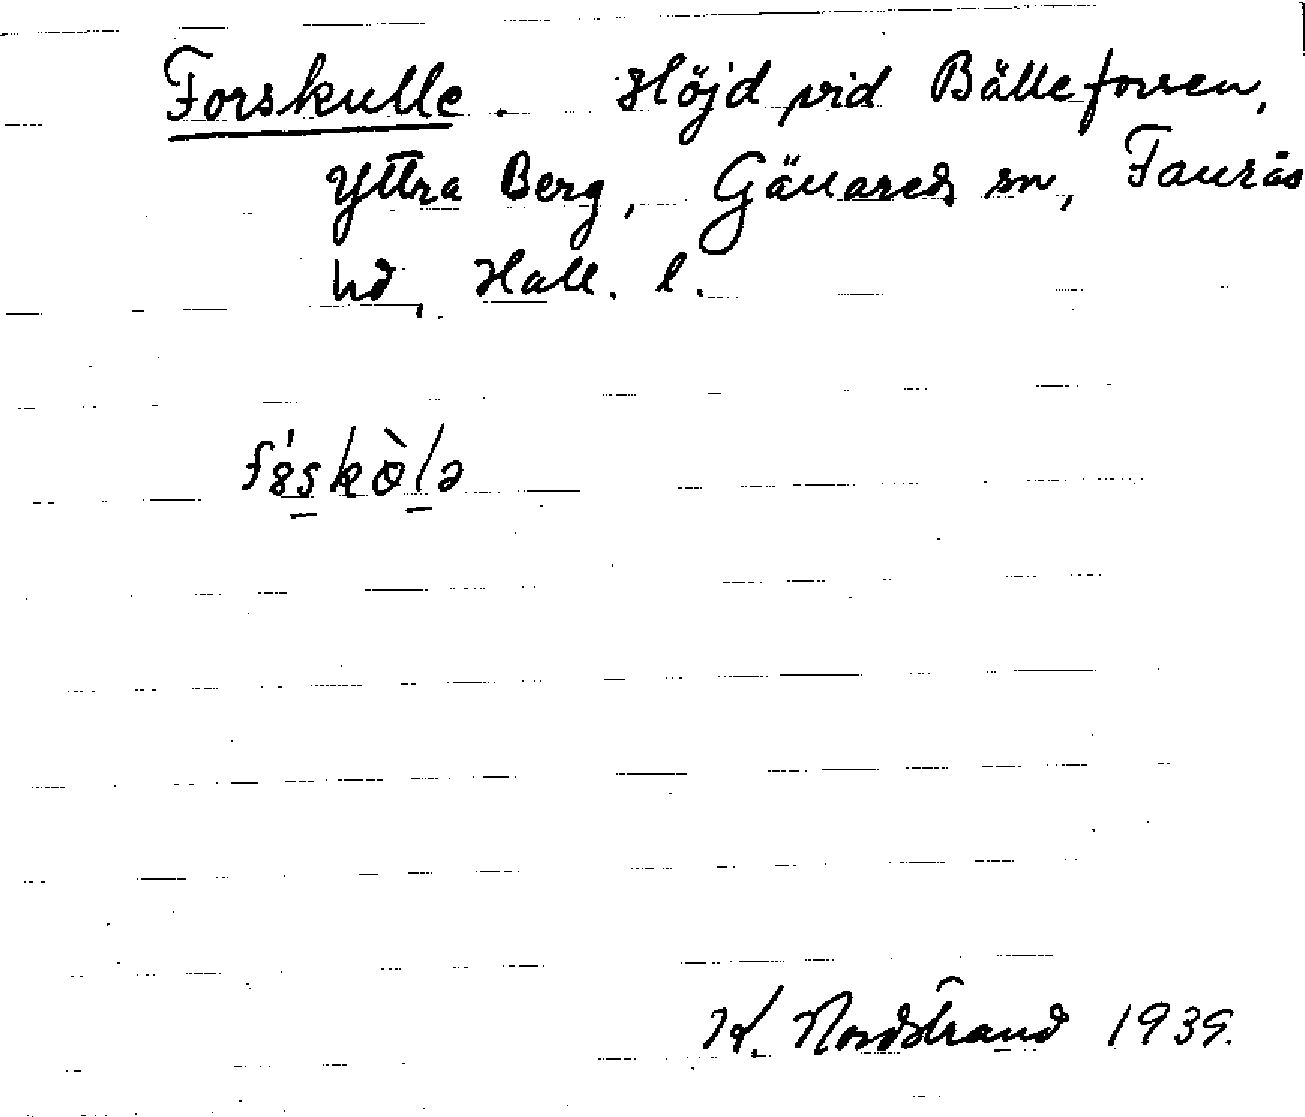 Forskulle. Höjd vid Bälleforsen,
Yttra Berg, Gällareds sn, Faurås
hd, Hall. l.
fɞ́skòlə
K. Nordstrand 1939.